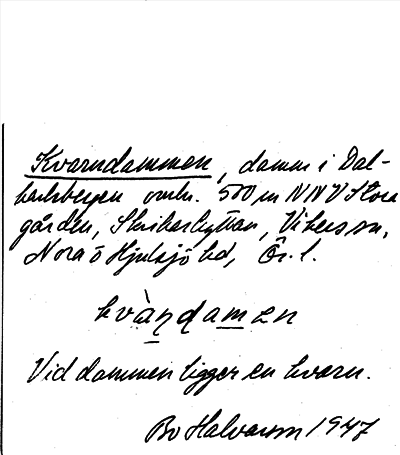 Kvarndammen, damm i Dal-
karlsbergen omkr. 500 m NNV Stora
gården, Skrikarhyttan, Vikers sn,
Nora o Hjulsjö hd, Ör. l.
kvàɳɖamen
Vid dammen ligger en kvarn.
Bo Halvarson 1947